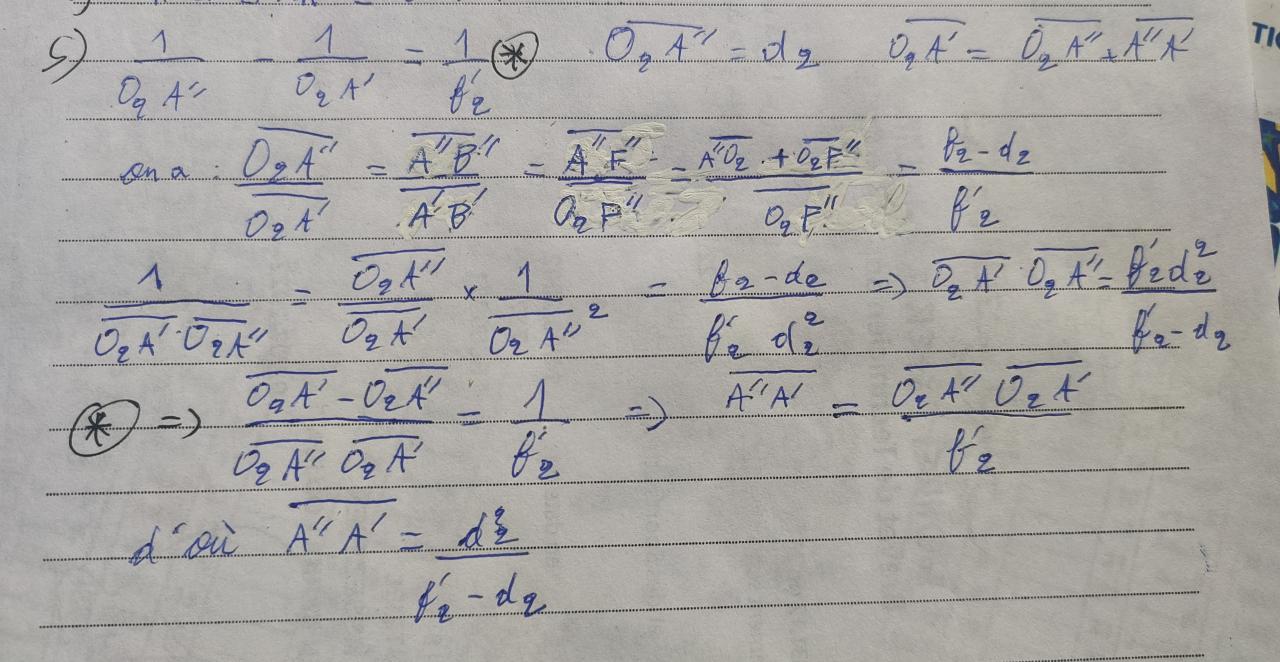 5) 1/(O₂A″) − 1/(O₂A′) = 1/f′₂ ⊛ O₂A″ = d₂ O₂A′ = O₂A″ + A″A′
on a : O₂A″/O₂A′ = A″B″/A′B′ = A″F″/O₂F″ = (A″O₂ + O₂F″)/O₂F″ = (f₂ − d₂)/f′₂
1/(O₂A′ · O₂A″) = O₂A″/O₂A′ × 1/O₂A″² = (f₂ − d₂)/(f′₂ d₂²) => O₂A′ O₂A″ = f′₂d₂²/(f′₂ − d₂)
⊛ => (O₂A′ − O₂A″)/(O₂A″ O₂A′) = 1/f′₂ => A″A′ = O₂A″ O₂A′/f′₂
d'où A″A′ = d₂²/(f′₂ − d₂)